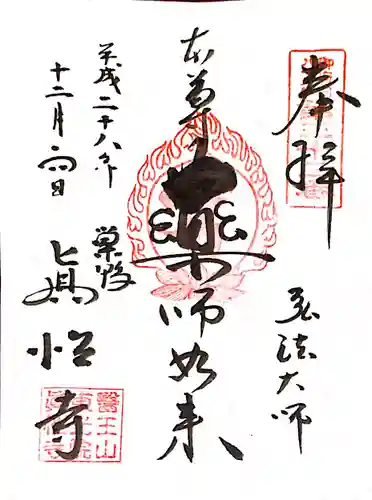 奉拝
弘法大師
本尊
薬師如来
巣鴨
真性寺
平成二十八年
十二月四日
醫王山
東光院
眞性寺